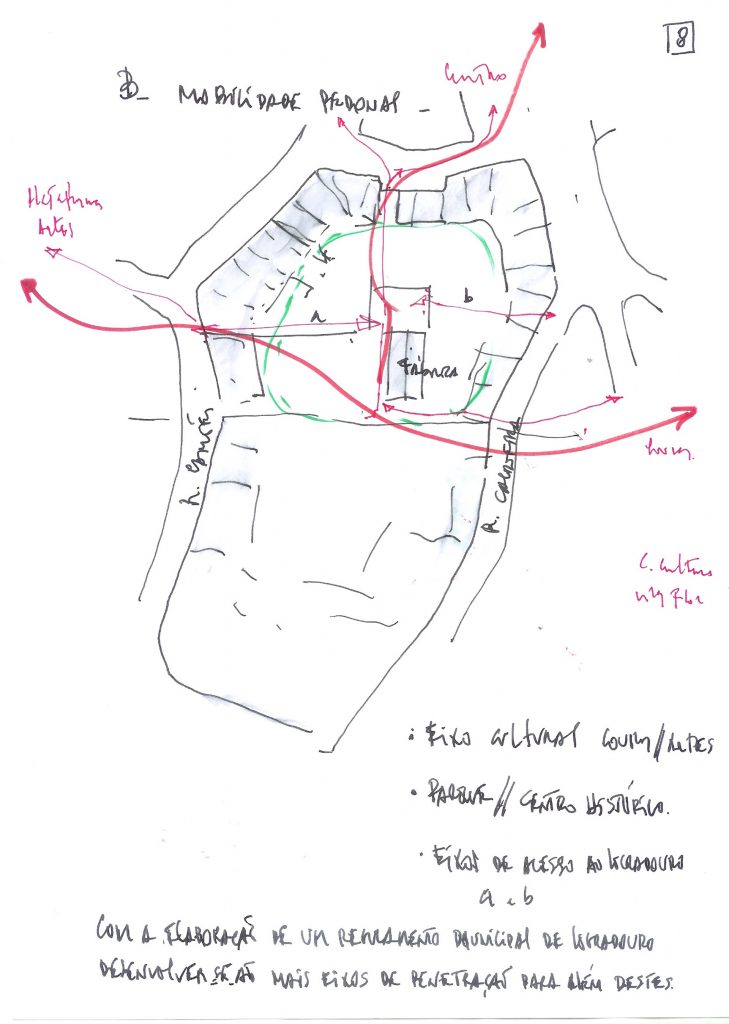 8
B_ MOBILIDADE PEDONAL _
Centro
Plataforma
Artes
b
a
FÁBRICA
R. CAMÕES
R. CALDEIROA
C. Cultura
Vila Flor
• EIXO CULTURAL COUROS//ARTES
• PARQUE // CENTRO HISTÓRICO.
• EIXOS DE ACESSO AO LOGRADOURO
a e b
COM A ELABORAÇÃO DE UM REGULAMENTO MUNICIPAL DE LOGRADOURO
DESENVOLVER-SE-ÃO MAIS EIXOS DE PENETRAÇÃO PARA ALÉM DESTES.